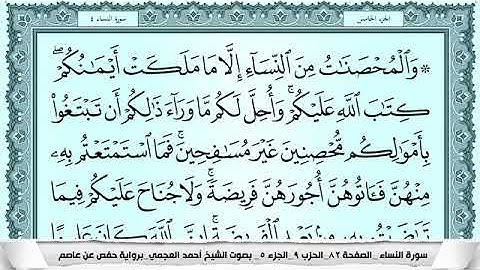 الجزء الخامس
سورة النساء ٤
۞ وَالْمُحْصَنَاتُ مِنَ النِّسَاءِ إِلَّا مَا مَلَكَتْ أَيْمَانُكُمْ ۖ
كِتَابَ اللَّهِ عَلَيْكُمْ ۚ وَأُحِلَّ لَكُم مَّا وَرَاءَ ذَٰلِكُمْ أَن تَبْتَغُوا
بِأَمْوَالِكُم مُّحْصِنِينَ غَيْرَ مُسَافِحِينَ ۚ فَمَا اسْتَمْتَعْتُم بِهِ
مِنْهُنَّ فَآتُوهُنَّ أُجُورَهُنَّ فَرِيضَةً ۚ وَلَا جُنَاحَ عَلَيْكُمْ فِيمَا
تَرَاضَيْتُم بِهِ مِن بَعْدِ الْفَرِيضَةِ ۚ إِنَّ اللَّهَ كَانَ عَلِيمًا
سورة النساء _ الصفحة ٨٢ _ الحزب ٩ _ الجزء ٥ _ بصوت الشيخ أحمد العجمي _ برواية حفص عن عاصم